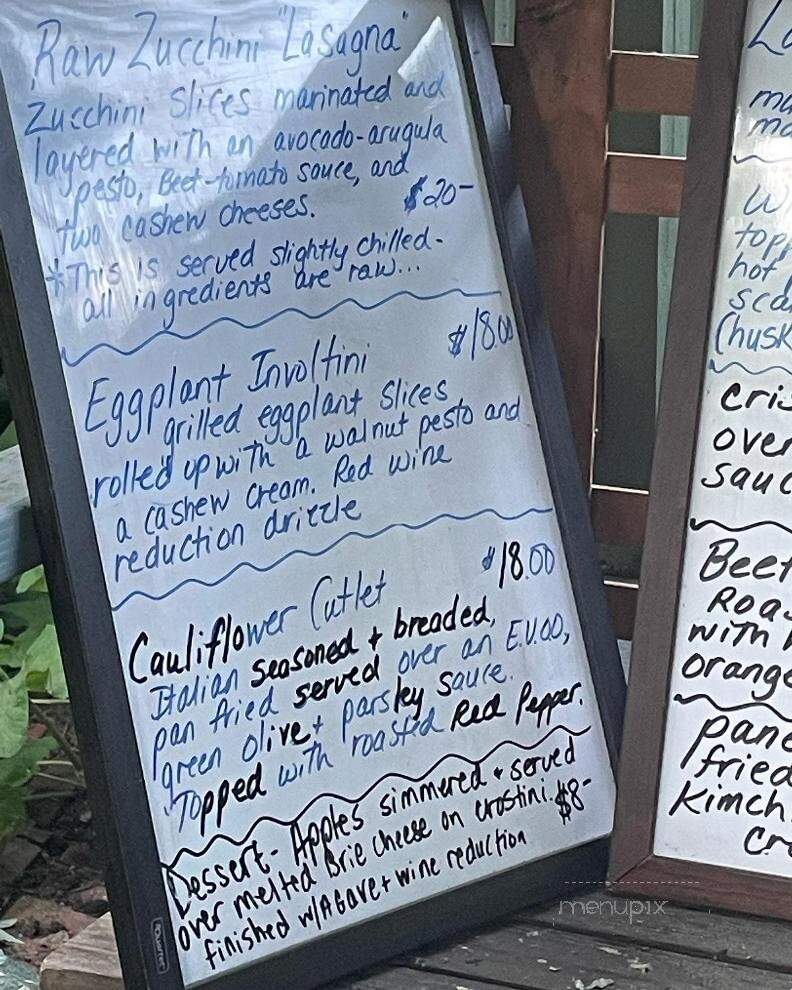 Raw Zucchini "Lasagna"
Zucchini slices marinated and
layered with an avocado-arugula
pesto, Beet-tomato sauce, and
two cashew cheeses. $20-
*This is served slightly chilled-
all ingredients are raw...
Eggplant Involtini $18.00
grilled eggplant slices
rolled up with a walnut pesto and
a cashew cream. Red wine
reduction drizzle
Cauliflower Cutlet $18.00
Italian seasoned + breaded,
pan fried served over an E.V.OO,
green olive + parsley sauce.
Topped with roasted Red Pepper.
Dessert- Apples simmered + served
over melted Brie cheese on crostini. $8-
finished w/Agave + wine reduction
Quartet
top
hot
sca
(husk
cris
over
sauc
Beet
Roas
with
orange
pane
fried
Kimch
cr
menupix